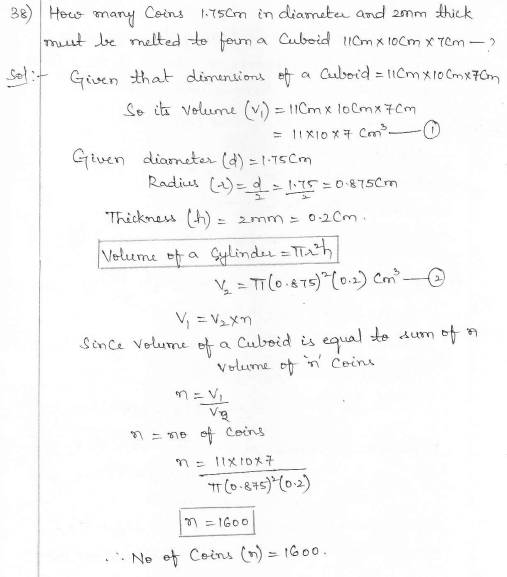 38) How many Coins 1.75Cm in diameter and 2mm thick
must be melted to form a Cuboid 11Cm x 10Cm x 7Cm — ?
Sol:- Given that dimensions of a Cuboid = 11Cm x 10Cm x 7Cm
So its Volume (V₁) = 11Cm x 10Cm x 7Cm
= 11 x 10 x 7 Cm³ — ①
Given diameter (d) = 1.75Cm
Radius (r) = d/2 = 1.75/2 = 0.875Cm
Thickness (h) = 2mm = 0.2Cm.
Volume of a Cylinder = πr²h
V₂ = π(0.875)²(0.2) Cm³ — ②
V₁ = V₂ x n
Since Volume of a Cuboid is equal to sum of n
Volume of 'n' Coins
n = V₁/V₂
n = no of Coins
n = 11 x 10 x 7 / π(0.875)²(0.2)
n = 1600
∴ No of Coins (n) = 1600.